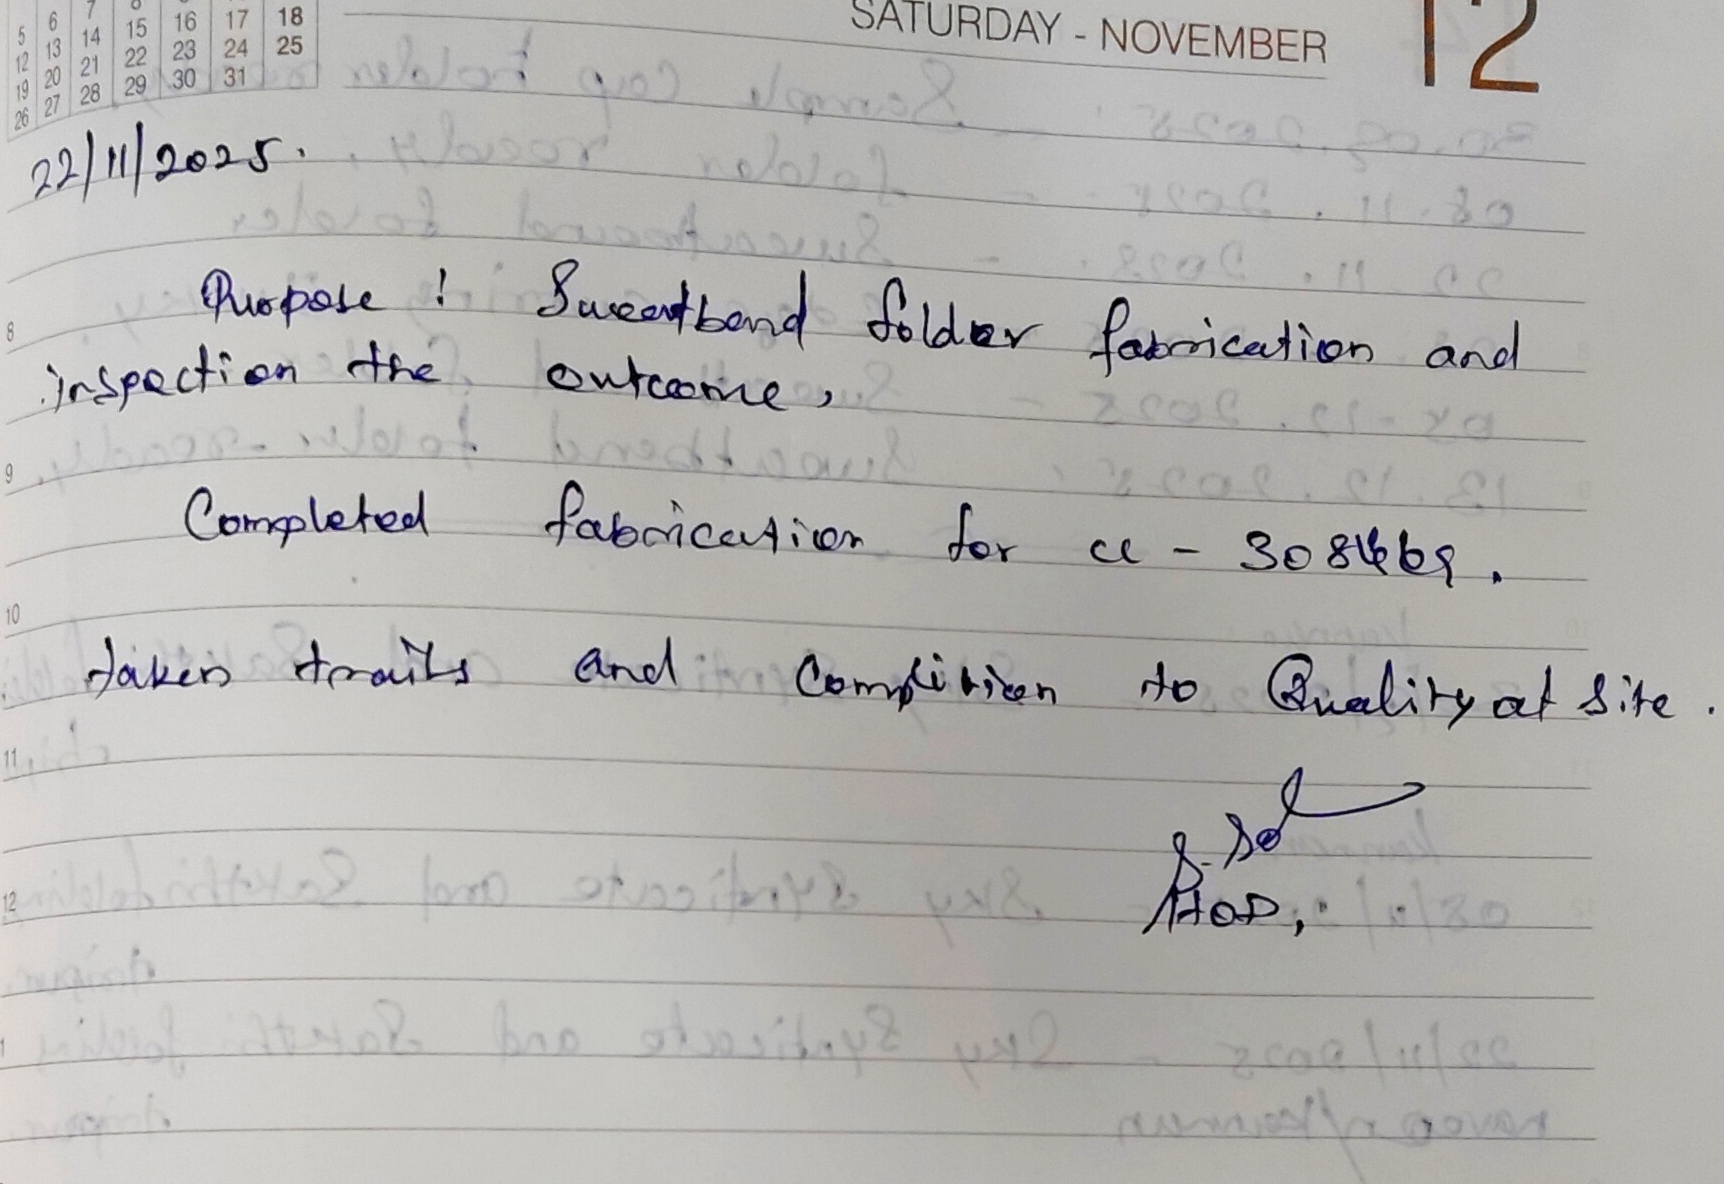 5 6 7 8 15 16 17 18
12 13 14 22 23 24 25
19 20 21 29 30 31
26 27 28
SATURDAY - NOVEMBER 12
22/11/2025.
Purpose : Sweatband folder fabrication and
8
inspection the outcome,
9
Completed fabrication for cc -
10
taken trails and Complition to Quality at site.
11
HOD,
12
1